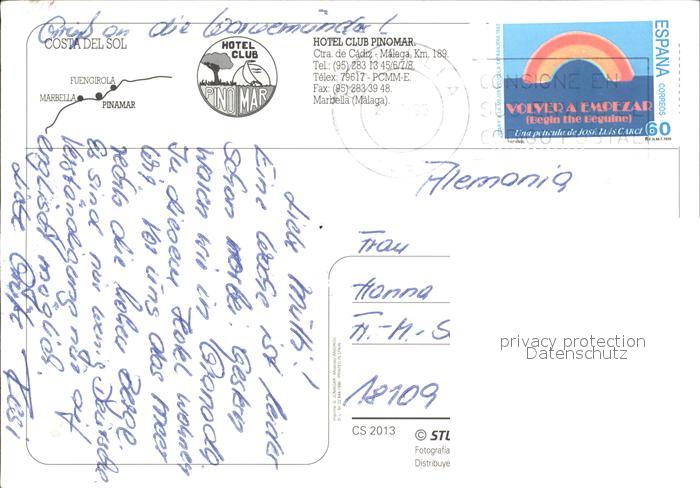 Gruß an die Warnemünder!
COSTA DEL SOL
FUENGIROLA
MARBELLA
PINAMAR
HOTEL CLUB
PINOMAR
HOTEL CLUB PINOMAR.
Ctra. de Cádiz - Málaga, Km. 189.
Tel.: (95) 283 13 45/6/7/8.
Télex: 79617 - PCMM-E.
Fax: (95) 283 39 48.
Marbella (Málaga).
CONSIGNE EN
ESPAÑA
CORREOS
VOLVER A EMPEZAR
(Begin the Beguine)
Una película de JOSÉ LUIS GARCI
60
Alemania
Liebe Mutti!
Eine Woche ist leider
schon vorbei. Gestern
waren wir in Granada
In diesem Hotel wohnen
wir. Vor uns das Meer
rechts die hohen Berge.
Es sind nur wenig Deutsche
Verständigung nur auf
englisch möglich.
Liebe Grüße
Frau
Hanna
H.-M.-S
18109
privacy protection
Datenschutz
CS 2013
© STU
Fotografía
Distribuye